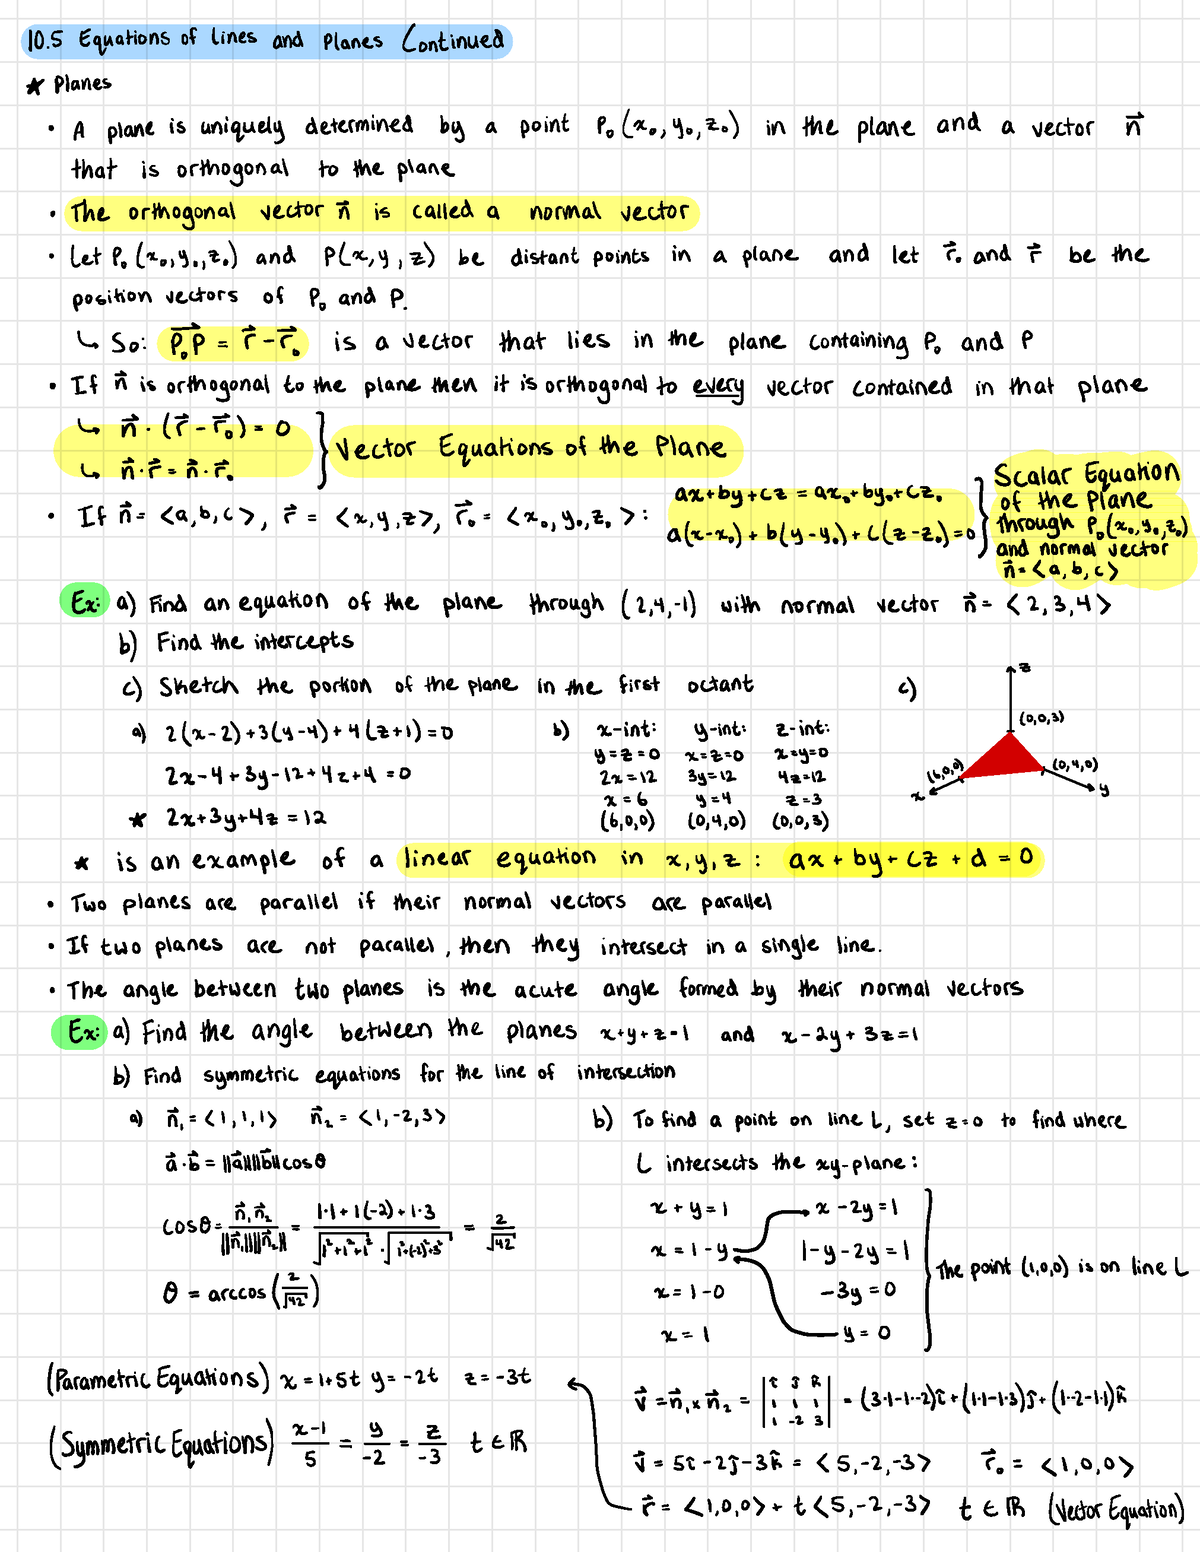 10.5 Equations of Lines and Planes Continued
★ Planes
• A plane is uniquely determined by a point P₀(x₀, y₀, z₀) in the plane and a vector n⃗
that is orthogonal to the plane
• The orthogonal vector n⃗ is called a normal vector
• Let P₀(x₀, y₀, z₀) and P(x, y, z) be distant points in a plane and let r⃗₀ and r⃗ be the
position vectors of P₀ and P.
↳ So: P₀P⃗ = r⃗ - r⃗₀ is a vector that lies in the plane containing P₀ and P
• If n⃗ is orthogonal to the plane then it is orthogonal to every vector contained in that plane
↳ n⃗ · (r⃗ - r⃗₀) = 0
↳ n⃗ · r⃗ = n⃗ · r⃗₀
} Vector Equations of the Plane
• If n⃗ = <a, b, c>, r⃗ = <x, y, z>, r⃗₀ = <x₀, y₀, z₀>:
ax+by+cz = ax₀+by₀+cz₀
a(x-x₀) + b(y-y₀) + c(z-z₀) = 0
} Scalar Equation
of the Plane
through P₀(x₀, y₀, z₀)
and normal vector
n⃗ = <a, b, c>
Ex: a) Find an equation of the plane through (2,4,-1) with normal vector n⃗ = <2,3,4>
b) Find the intercepts
c) Sketch the portion of the plane in the first octant
a) 2(x-2)+3(y-4)+4(z+1)=0
2x-4+3y-12+4z+4=0
★ 2x+3y+4z=12
b) x-int: y-int: z-int:
y=z=0 x=z=0 x=y=0
2x=12 3y=12 4z=12
x=6 y=4 z=3
(6,0,0) (0,4,0) (0,0,3)
c)
z
(0,0,3)
(6,0,0) (0,4,0)
x y
★ is an example of a linear equation in x, y, z : ax + by + cz + d = 0
• Two planes are parallel if their normal vectors are parallel
• If two planes are not parallel, then they intersect in a single line.
• The angle between two planes is the acute angle formed by their normal vectors
Ex: a) Find the angle between the planes x+y+z=1 and x-2y+3z=1
b) Find symmetric equations for the line of intersection
a) n⃗₁ = <1,1,1> n⃗₂ = <1,-2,3>
a⃗·b⃗ = ||a⃗||||b⃗||cosθ
cosθ = n⃗₁n⃗₂ / ||n⃗₁||||n⃗₂|| = 1·1+1(-2)+1·3 / √1²+1²+1² · √1²+(-2)²+3² = 2/√42
θ = arccos(2/√42)
b) To find a point on line L, set z=0 to find where
L intersects the xy-plane:
x+y=1 x-2y=1
x=1-y 1-y-2y=1
x=1-0 -3y=0
x=1 y=0
The point (1,0,0) is on line L
(Parametric Equations) x=1+5t y=-2t z=-3t
(Symmetric Equations) x-1/5 = y/-2 = z/-3 t∈ℝ
v⃗ = n⃗₁×n⃗₂ = |î ĵ k̂
1 1 1
1 -2 3| = (3·1-1·-2)î+(1·1-1·3)ĵ+(1·-2-1·1)k̂
v⃗ = 5î-2ĵ-3k̂ = <5,-2,-3> r⃗₀ = <1,0,0>
r⃗ = <1,0,0>+t<5,-2,-3> t∈ℝ (Vector Equation)